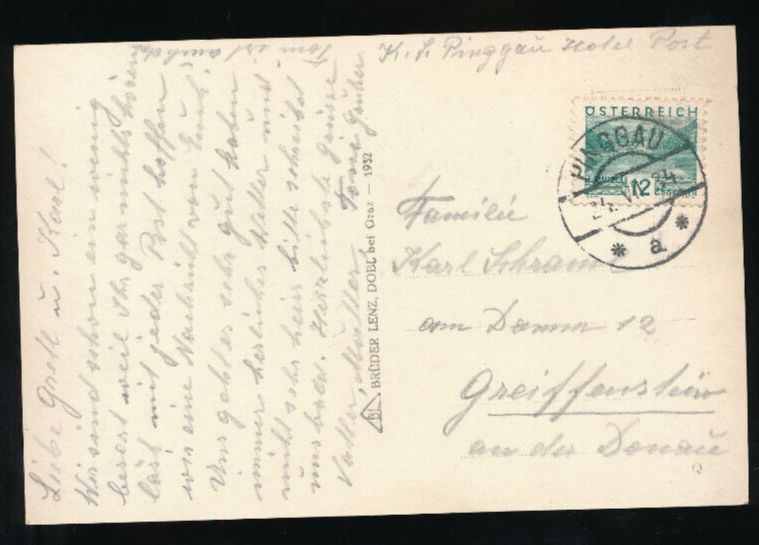 K. L. Pinggau Hotel Post
ÖSTERREICH
12
PINGGAU
a
Familie
Karl Schraml
am Damm 12
Greiffenstein
an der Donau
BL BRÜDER LENZ, DOBL bei Graz — 1932
Liebe Gretl u. Karl!
Wir sind schon ein wenig
besorgt weil Ihr gar nichts hören
läst mit jeder Post hoffen
wir eine Nachricht von Euch.
Uns geht es sehr gut haben
immer herliches Wetter und
nicht sehr heiss bitte schreibt
uns bald. Herzlichste Grüsse
Vatter, Mutter, Toni
Toni ist auch da